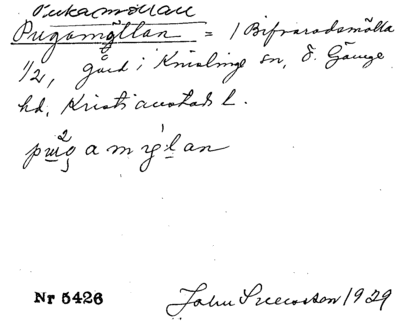 Pukamöllan
Pugamöllan = / Bifrarodsmölla
1/2, gård i Knislinge sn, ö. Göinge
hd, Kristianstads l.
Nr 5426 John Svensson 1929